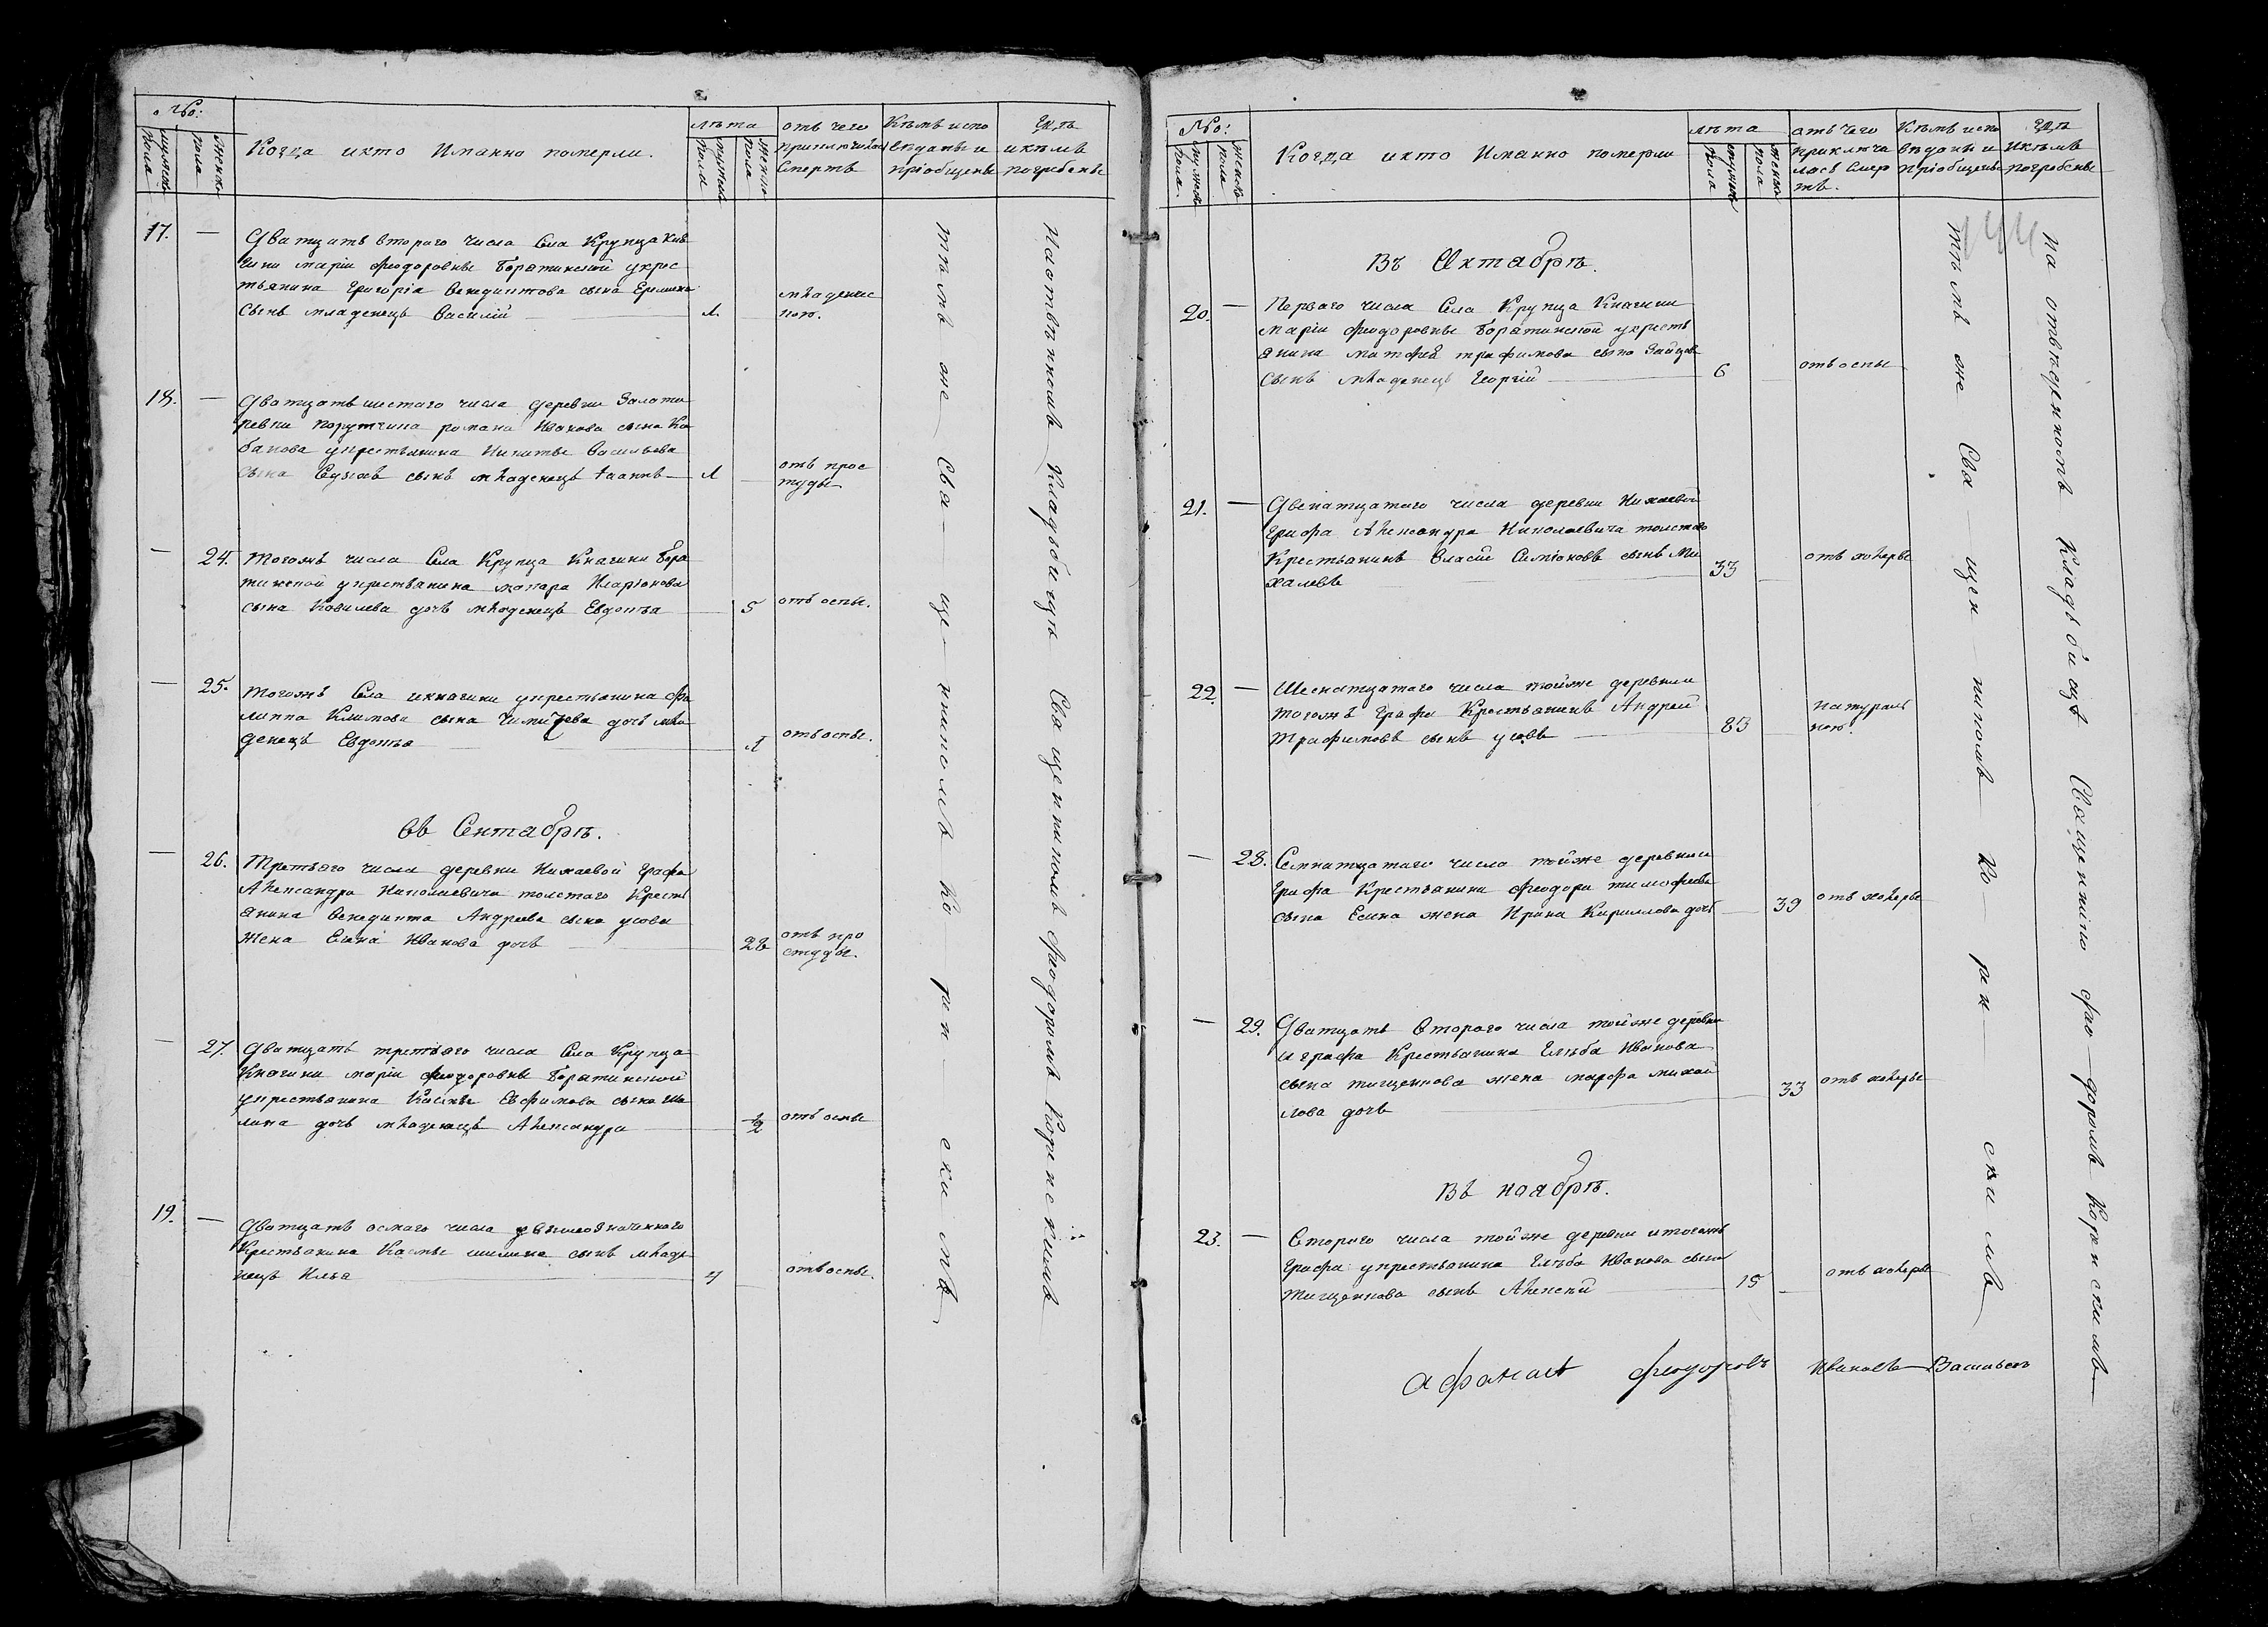 №:
мужеска пола
женска пола
Когда и кто Имянно померли.
лѣта
мужеска пола
женска пола
отъ чего
приключилась
Смерть
Кѣмъ испо
вѣданы и
пріобщены
Гдѣ
и кѣмъ
погребены
17. —
Дватцать втораго числа Села Крупца Кня
гини маріи Феодоровны Борятинской укрес
тьянина Григорія Венедиктова сына
Сынъ младенецъ Василій
младенчес
кою.
18. —
Дватцать шестаго числа деревни
порутчика романа Иванова сына Ка
банова укрестьянина Никиты Васильева
сына сынъ младенецъ Іоаннъ
отъ прос
туды
— 24.
Тогожъ числа Села Крупца Княгини Боря
тинской укрестьянина макара Иларіонова
сына Ковилева дочь младенецъ Евдокъа
5
отъ оспы.
— 25.
Тогожъ Села икнягини укрестьянина Фи
липпа Климова сына дочь мла
денецъ Евдокъа
отъ оспы.
Въ Сентябрѣ.
— 26.
Третьяго числа деревни Нижаевой Графа
Александра Николаевича толстаго Кресть
янина Венедикта Андреева сына усова
жена Елена Иванова дочь
28
отъ про
студы.
— 27.
Дватцать третьяго числа Села Крупца
Княгини маріи Феодоровны Борятинской
укрестьянина Касмы Евфимова сына Ши
лина дочь младенецъ Александра
1/2
отъ оспы
19. —
Дватцать осмаго числа увышеозначеннаго
Крестьянина Касмы шилина сынъ младе
нецъ Илья
4
отъ оспы.
тѣмъ же Свя-ще-нникомъ Ко-рен-скимъ
На отвѣденномъ Кладбищѣ Священникомъ Феодоромъ Коренскимъ
№:
мужеска пола.
женска пола
Когда и кто Имянно померли
лѣта
мужеска пола
женска пола
отъ чего
приключи
лась Смер
ть.
Кѣмъ испо
вѣданы и
пріобщены
Гдѣ
и кѣмъ
погребены
Въ Октябрѣ.
20. —
Перваго числа Села Крупца Княгини
маріи Феодоровны Борятинской укресть
янина матфея трофимова сына Зайцова
Сынъ младенецъ Георгій
6
отъ оспы
21. —
Двенатцатаго числа деревни Нижаевой
Графа Александра Николаевича толстаго
Крестьянинъ Власій Симіоновъ сынъ Ми
халевъ
33
отъ холеры
22. —
Шеснатцатаго числа тойже деревни и
тогожъ Графа Крестьянинъ Андрей
Трофимовъ сынъ усовъ
83
натураль
ною.
— 28.
Семнатцатаго числа тойже деревни и
Графа Крестьянина Феодора тимофеева
сына Есина жена Ирина Кирилова дочь
39
отъ холеры
— 29.
Дватцать Втораго числа тойже деревни
и графа Крестьянина Глѣба Иванова
сына тищенкова жена марфа михаи
лова дочь
33
отъ холеры
Въ ноябрѣ.
23. —
Втораго числа тойже деревни итогожъ
Графа укрестьянина Глѣба Иванова сына
тищенкова сынъ Алексѣй
15
отъ холеры
тѣмъ же Свя-щен-никомъ Ко-рен-скимъ
на отвѣденномъ Кладбищѣ Священникомъ Феодоромъ Коренскимъ
Афанасій Феодоровъ Ивановъ Васильевъ